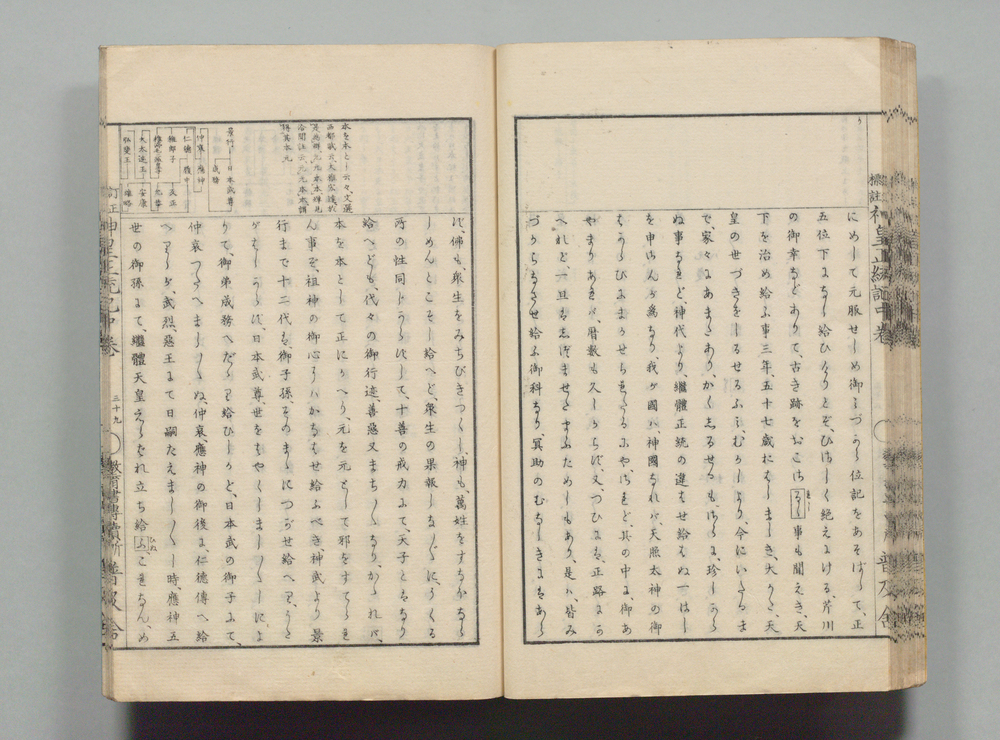 標註神皇正統記中卷
普及舍
にめして元服せしめ御みづから位記をあそばして、正
五位下になし給ひけりとぞ、ひさしく絶えにける、芹川
の御幸などありて、古き跡をおこさるゝ事も聞えき、天
下を治め給ふ事三年、五十七歳おはしましき、大かた、天
皇の世づきをしるせるふみ、むかしより、今にいたるま
で、家々にあまたあり、かくしるせるも、さらに、珍しから
ぬ事なれど、神代より、繼體正統の違はせ給はぬ一はし
を申さんが為なり、我が國ハ神國なれバ、天照太神の御
はからひにまかせられたるにや、されど其の中に、御あ
やまりあれバ、暦數も久しからず、又つひには、正路にか
へれど、一旦もしづませたまふためしもあり、是ハ皆み
づからなさせ給ふ御科なり、冥助のむなしきにはあら
本を本と云々、文選
景行 日本武尊
成務
仲哀 應神
仁德 履中
稚郎子 反正
允恭
大木 安康
雄略
ず、佛も、衆生をみちびきつくし、神も、萬姓をすなほなら
しめんとこそし給へど、衆生の果報しな〴〵に、うくる
所の性同じからずして、十善の戒力にて、天子とはなり
給へども、代々の御行迹、善惡又まち〳〵なり、かゝれバ、
本を本として正にかへり元を元として邪をすてられ
ん事ぞ、祖神の御心にハかなはせ給ふべき、神武より景
行まで十二代は、御子孫そのまゝにつがせ給へり、うた
がはしからず、日本武尊、世をはやくしましましゝによ
りて、御弟成務へだゝり給ひしかど、日本武の御子にて、
仲哀つたへましましぬ、仲哀應神の御後に、仁德傳へ給
へりしが、武烈惡王にて日嗣たえましましゝ時應神五
世の御孫にて、繼體天皇えらばれ立ち給ふ、これなん、め
訂正
卷
三十九